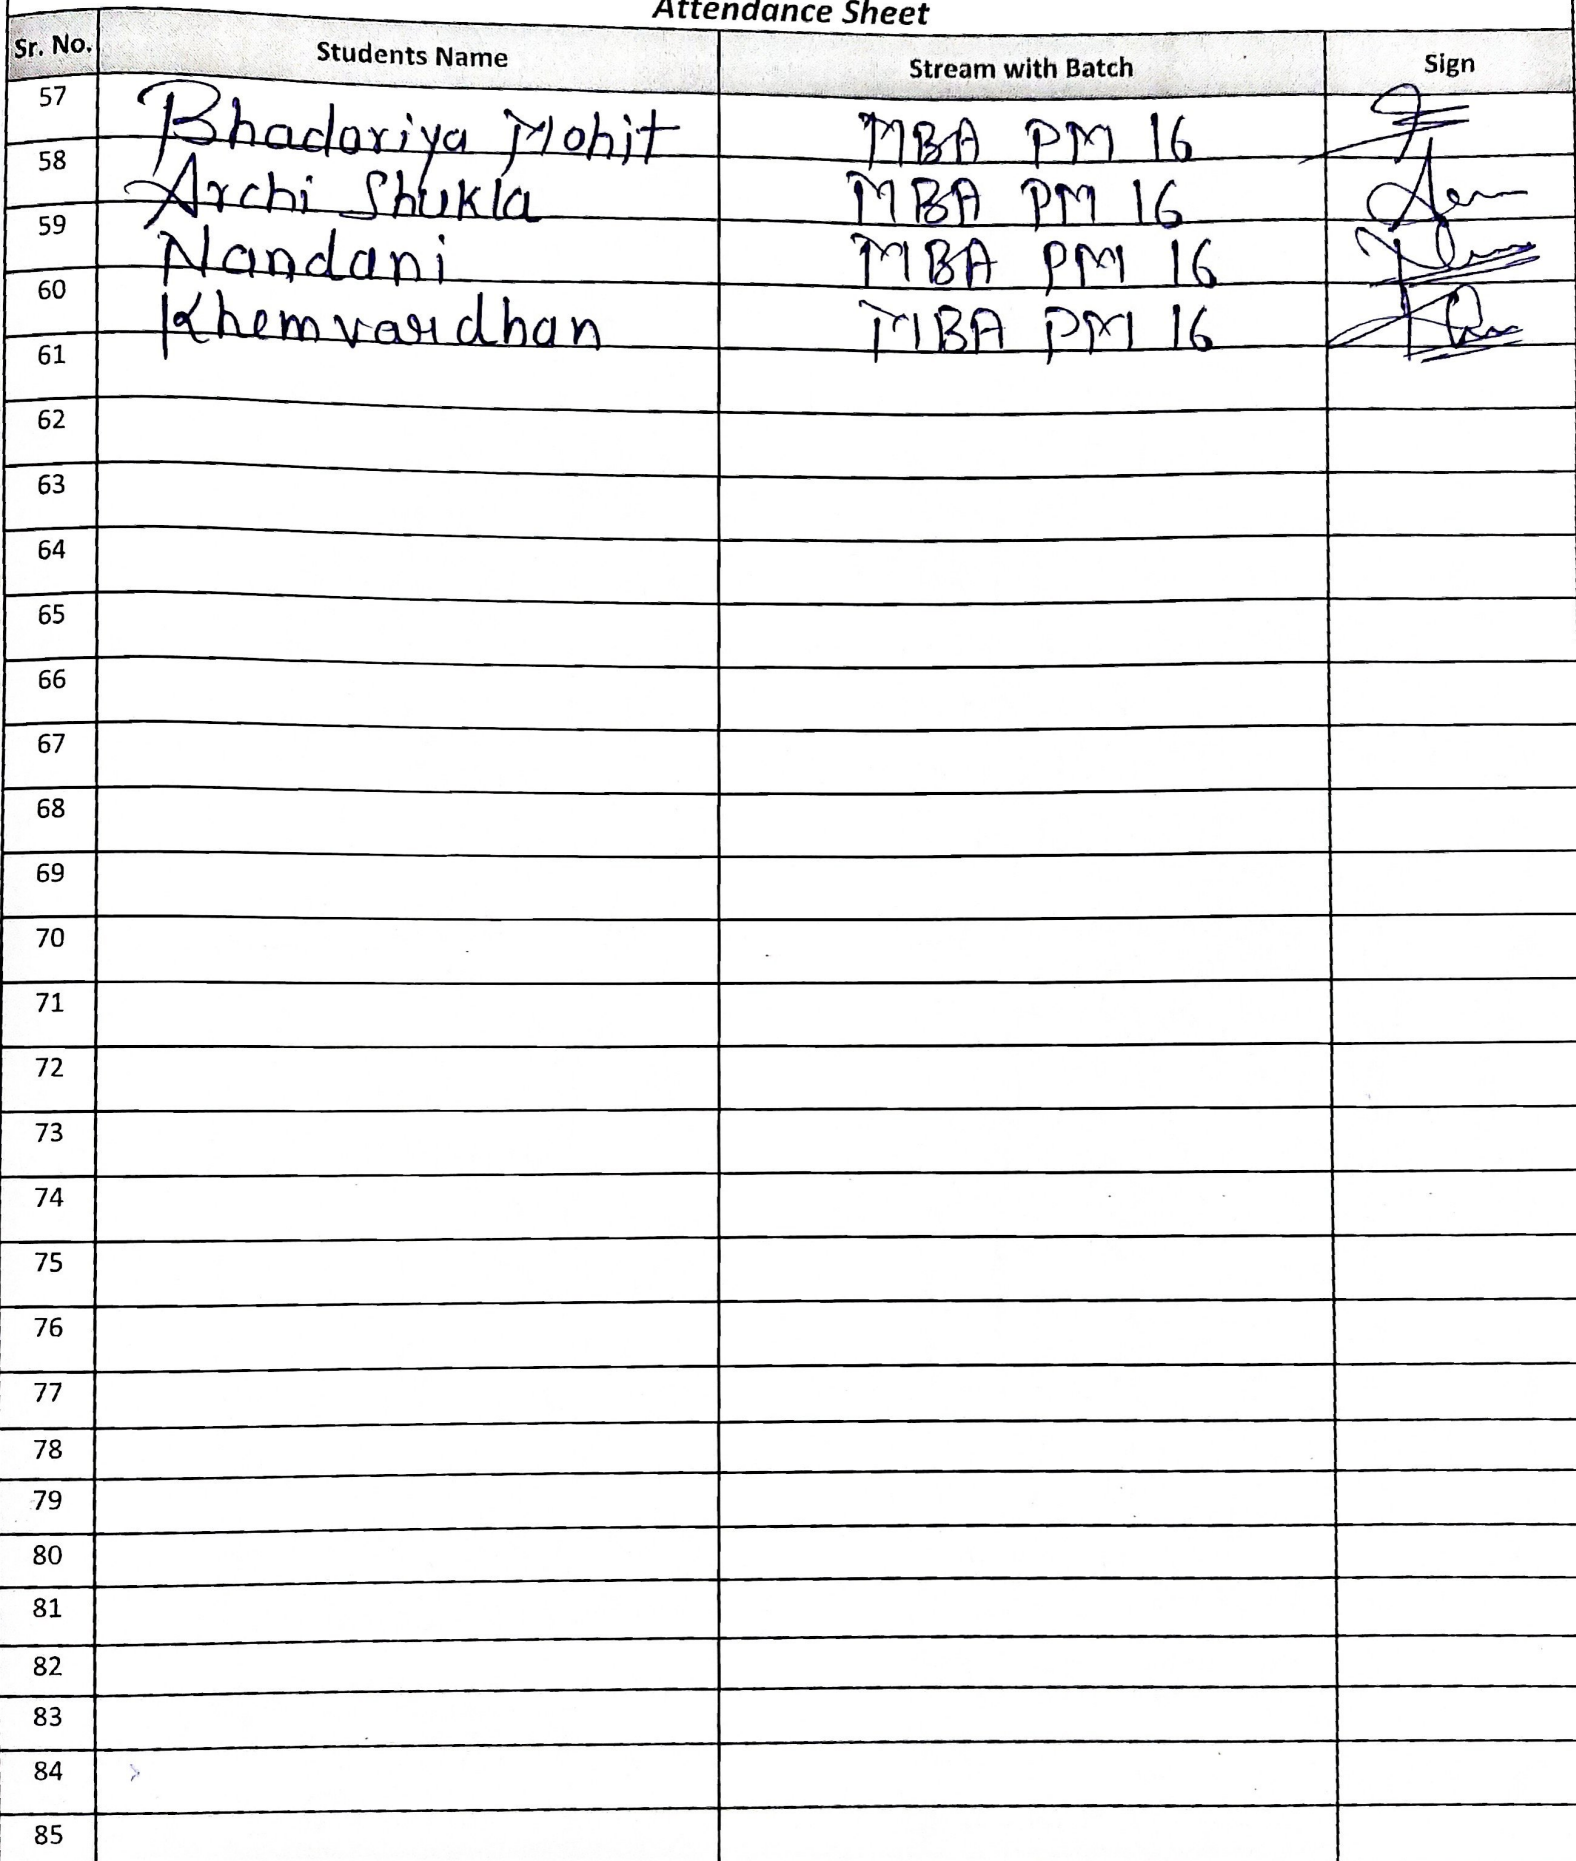 Attendance Sheet
Sr. No. Students Name Stream with Batch Sign
57 Bhadoriya Mohit MBA PM 16
58 Archi Shukla MBA PM 16
59 Nandani MBA PM 16
60 Khemvardhan MBA PM 16
61
62
63
64
65
66
67
68
69
70
71
72
73
74
75
76
77
78
79
80
81
82
83
84
85